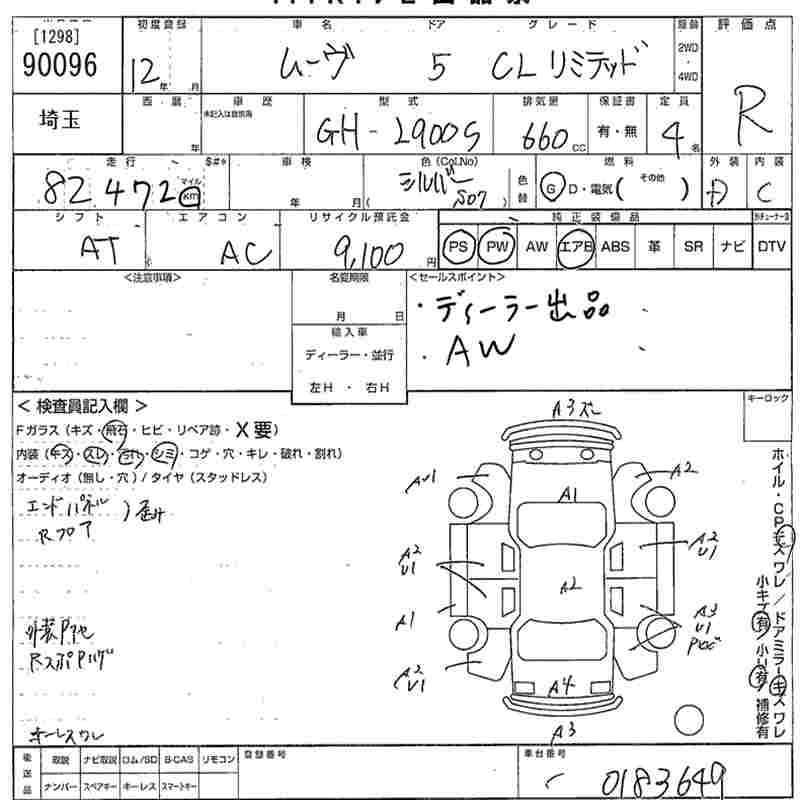 [1298]
90096
初度登録
12
年
月
車名
ムーヴ
ドア
5
グレード
CL リミテッド
2WD
・
4WD
評価点
R
埼玉
年
車歴
未記入は自家用
型式
GH-L900S
排気量
660
CC
保証書
有・無
定員
4
名
走行
82472
マイル
km
車検
年 月
色(Col.No)
シルバー
S07
色替
燃料
G D・電気( その他 )
外装
D
内装
C
シフト
AT
エアコン
AC
リサイクル預託金
9,100
円
純正装備品
PS PW AW エアB ABS 革 SR ナビ DTV
<注意事項>
名変期限
月 日
輸入車
ディーラー・並行
左H・右H
<セールスポイント>
・ディーラー出品
・AW
<検査員記入欄>
Fガラス(キズ・飛石・ヒビ・リペア跡・X要)
内装(キズ・スレ・汚れ・シミ・コゲ・穴・キレ・破れ・割れ)
オーディオ(無し・穴)/タイヤ(スタッドレス)
エンドパネル
Rフロア
)歪み
外装Pアセ
RスポPハゲ
キーレスワレ
キーロック
A3ズレ
AU1
A2
A1
A2
U1
A2
U1
A2
A1
A3
U1
A2
U1
A4
A3
ホイル・CPキズワレ/ドアミラーキズワレ
小キズ有/小凹有/補修有
後送品
取説 ナビ取説 ロム/SD B-CAS リモコン
ナンバー スペアキー キーレス スマートキー
登録番号
車台番号
0183649